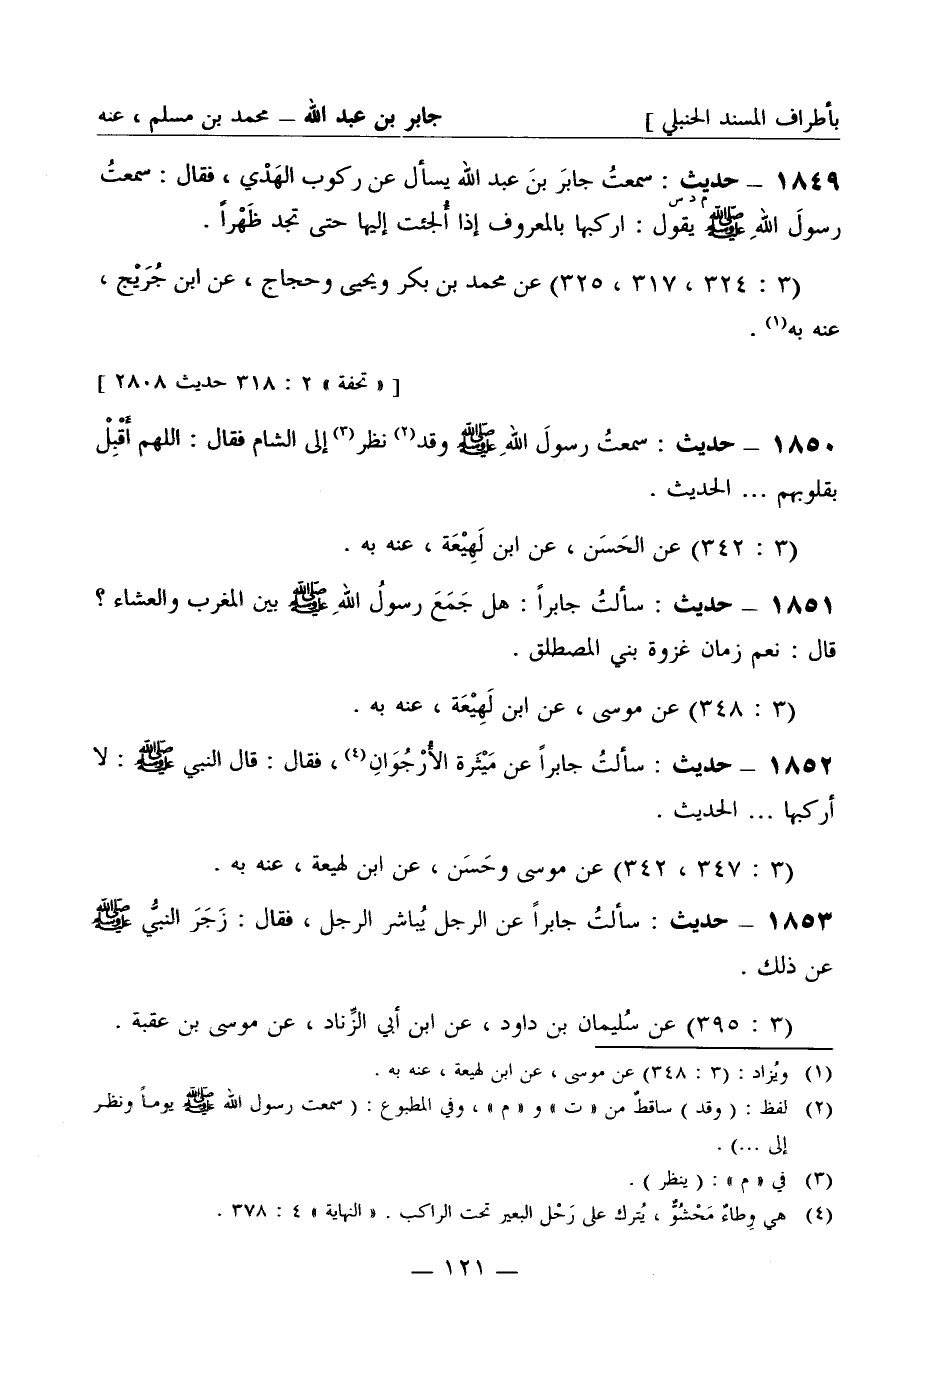 بأطراف المسند الحنبلي ] جابر بن عبد الله ــ محمد بن مسلم ، عنه
١٨٤٩ ــ حديث : سمعتُ جابرَ بنَ عبد الله يسأل عن ركوب الهَدْي ، فقال : سمعتُ
م د س
رسولَ اللهِ ﷺ يقول : اركبها بالمعروف إذا أُلجئت إليها حتى تجد ظَهْراً .
(٣ : ٣٢٤ ، ٣١٧ ، ٣٢٥) عن محمد بن بكر ويحيى وحجاج ، عن ابن جُرَيْج ،
عنه به(١) .
[ « تحفة » ٢ : ٣١٨ حديث ٢٨٠٨ ]
١٨٥٠ ــ حديث : سمعتُ رسولَ اللهِ ﷺ وقد(٢) نظر(٣) إلى الشام فقال : اللهم أَقْبِلْ
بقلوبهم ... الحديث .
(٣ : ٣٤٢) عن الحَسَن ، عن ابن لَهِيْعَة ، عنه به .
١٨٥١ ــ حديث : سألتُ جابراً : هل جَمَعَ رسولُ اللهِ ﷺ بين المغرب والعشاء ؟
قال : نعم زمان غزوة بني المصطلق .
(٣ : ٣٤٨) عن موسى ، عن ابن لَهِيْعَة ، عنه به .
١٨٥٢ ــ حديث : سألتُ جابراً عن مَيْثَرة الأُرْجُوَانِ(٤) ، فقال : قال النبي ﷺ : لا
أركبها ... الحديث .
(٣ : ٣٤٧ ، ٣٤٢) عن موسى وحَسَن ، عن ابن لهيعة ، عنه به .
١٨٥٣ ــ حديث : سألتُ جابراً عن الرجل يُباشر الرجل ، فقال : زَجَرَ النبيُّ ﷺ
عن ذلك .
(٣ : ٣٩٥) عن سُليمان بن داود ، عن ابن أبي الزِّناد ، عن موسى بن عقبة .
(١) ويُزاد : (٣ : ٣٤٨) عن موسى ، عن ابن لهيعة ، عنه به .
(٢) لفظ : ( وقد ) ساقطٌ من « ت » و « م » ، وفي المطبوع : ( سمعت رسول الله ﷺ يوماً ونظر
إلى ...) .
(٣) في « م » : ( ينظر ) .
(٤) هي وِطاءٌ مَحْشُوٌّ ، يُترك على رَحْل البعير تحت الراكب . « النهاية » ٤ : ٣٧٨ .
ــ ١٢١ ــ